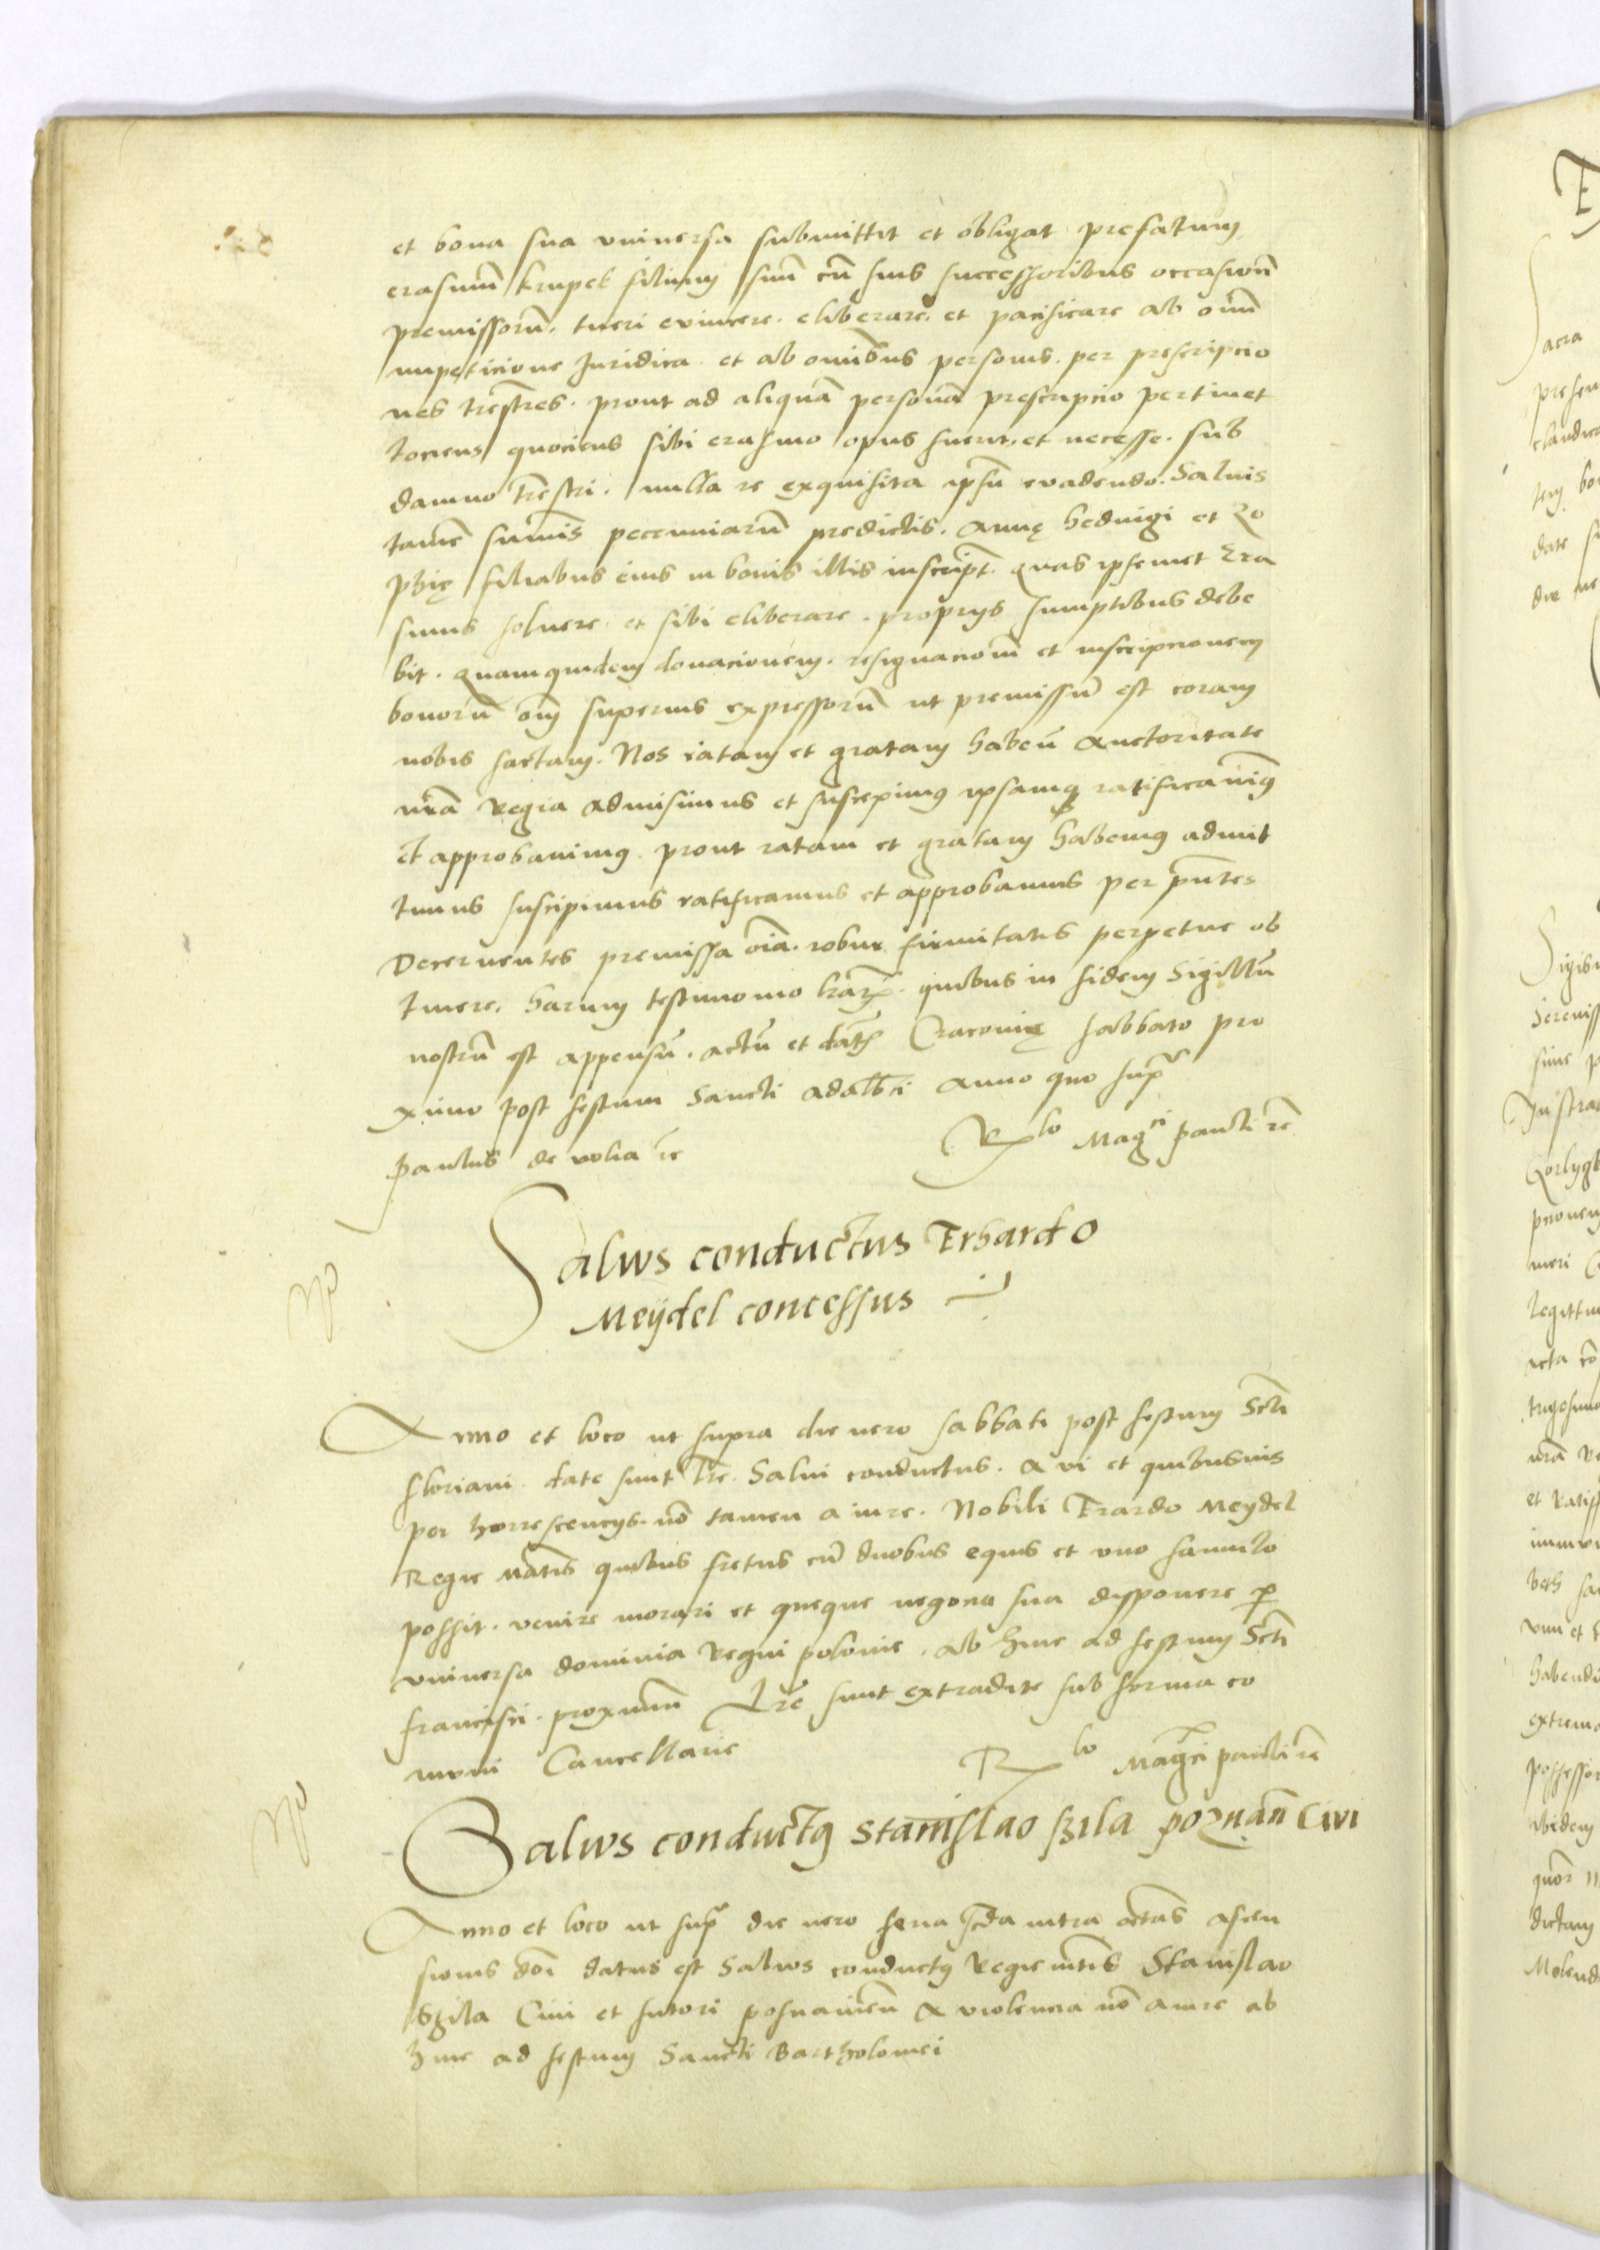 et bona sua vniuersa submittit et obligat prefatum
erasmū krupek filium suū cū suis successoribus occasionē
premissorū. tueri euincere. eliberare. et pacificare ab omī
impeticione Juridica et ab omībus personis. per prescripcio
nes trēstres. prout ad aliquā personā prescripcio pertinet
tociens quociens sibi erasmo opus fuerit. et necesse. sub
damno trēstri. nulla re exquisita ipsū euadendo. Saluis
tamē sumīs pecenniarū predictis. Annę heduigi et Zo
phię filiabus eius in bonis illis inscript. quas ipsemet Era
smus soluere et sibi eliberare. proprijs sumptibus debe
bit. quamquidem donacionem. resignacionē et inscripcionem
bonorū oīm superius expressorū ut premissū est coram
nobis factam. Nos ratam et gratam habeñ Auctoritate
nrā Regia admisimus et suscepimus ipsamq ratificauimus
et approbauimus. prout ratam et gratam habemus admit
timus suscipimus ratificamus et approbamus per pñtes
Decernentes premissa oīa. robur firmitatis perpetue ob
tinere. harum testimonio lrar̄. quibus in fidem Sigillū
nostrū est appensū. actū et dat̄ Cracouię sabbato pro
ximo post festum Sancti adalbti Anno quo supͣ
paulus de volia rē
Rlo Magci pauli rē
Saluus conductus Erhardo
Meÿdel concessus
Anno et loco ut supra die uero sabbati post festum Scti
floriani date sunt lrē. Salui conductus. a vi et quibusuis
per horrescencijs. nō tamen a iure. Nobili Erardo Meÿdel
Regie Matis quibus fretus cū duobus equis et vno famulo
possit. venire morari et queque negocia sua disponere p
vniuersa dominia Regni polonie. ab hinc ad festum Scti
francisci. proximū Lrē sunt extradite sub forma co
muni Cancellarie
Rlo Magci pauli rē
Saluus conductq Stanislao szila poznañ Civi
Anno et loco ut supͣ die uero feria scda intra octās ascen
sionis dōi datus est Saluus conductq Regie mtis Stanislao
Szila Ciui et sutori posnanieñ a violencia nō a iure ab
hinc ad festum Sancti Bartholomei